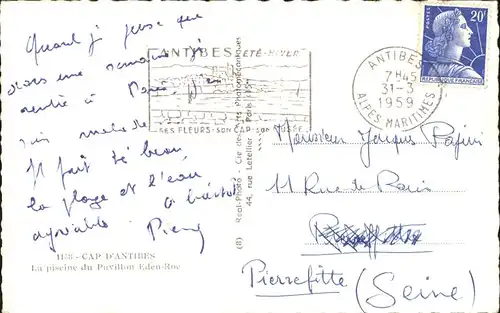 Quand j' pense que
dans une semaine j'
rentre à Paris, j'en
suis malade.
Il fait très beau,
la plage et l'eau
agréable. A bientôt
Pierre
1138 - CAP D'ANTIBES
La piscine du Pavillon Eden-Roc
(8) Real-Photo - Cie des Arts Photomécaniques
44, rue Letellier - Paris 15e
ANTIBES ÉTÉ-HIVER
SES FLEURS-SON CAP-SON MUSÉE
ANTIBES
7H45
31-3
1959
ALPES MARITIMES
POSTES
20F
REPUBLIQUE FRANÇAISE
Monsieur Jacques
11 Rue de Paris
Pierrefitte (Seine)